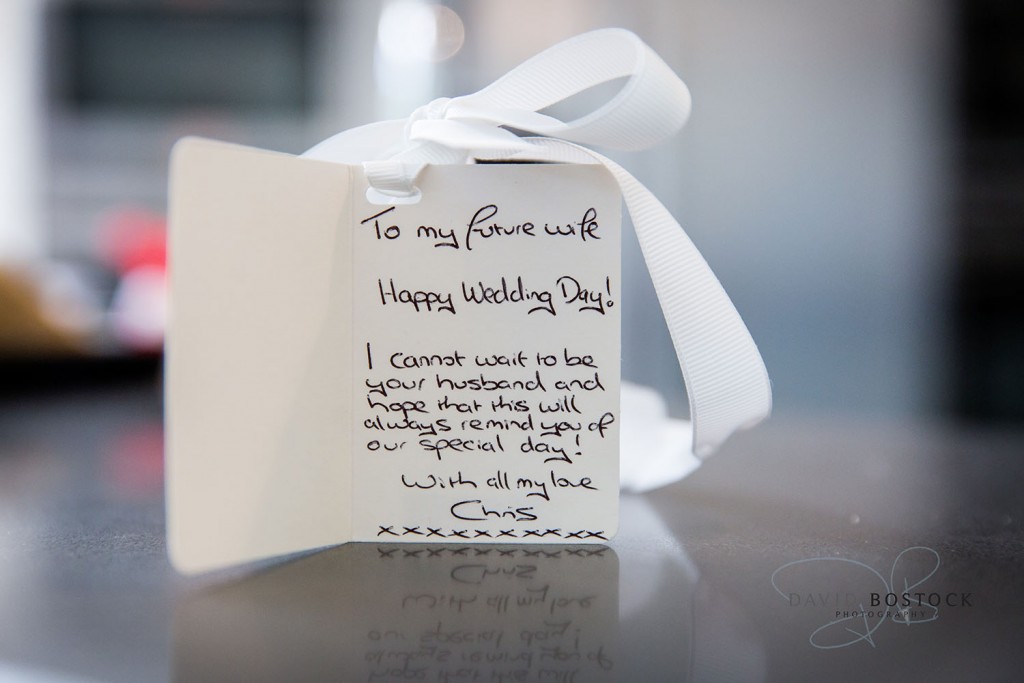 To my future wife
Happy Wedding Day!
I cannot wait to be
your husband and
hope that this will
always remind you of
our special day!
With all my love
Chris
xxxxxxxxxx
DAVID BOSTOCK
PHOTOGRAPHY